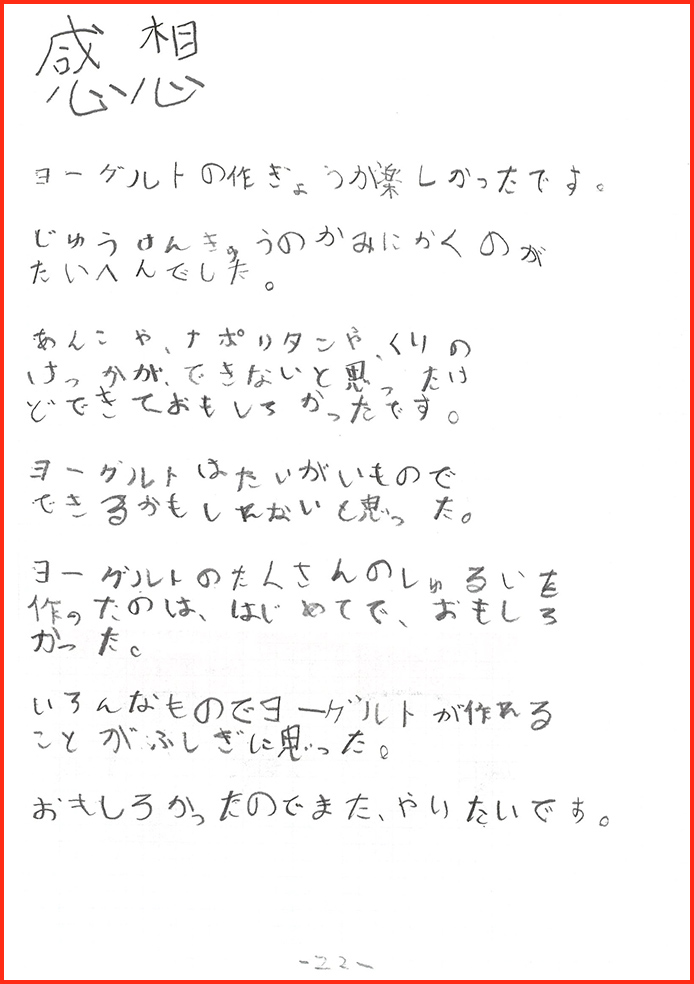 感想
ヨーグルトの作ぎょうが楽しかったです。
じゆうけんきゅうのかみにかくのが
たいへんでした。
あんこや、ナポリタンや、くりの
けっかが、できないと思ったけ
どできておもしろかったです。
ヨーグルトはたいがいもので
できるかもしれないと思った。
ヨーグルトのたくさんのしゅるいを
作ったのは、はじめてで、おもしろ
かった。
いろんなものでヨーグルトが作れる
ことがふしぎに思った。
おもしろかったのでまた、やりたいです。
-22-